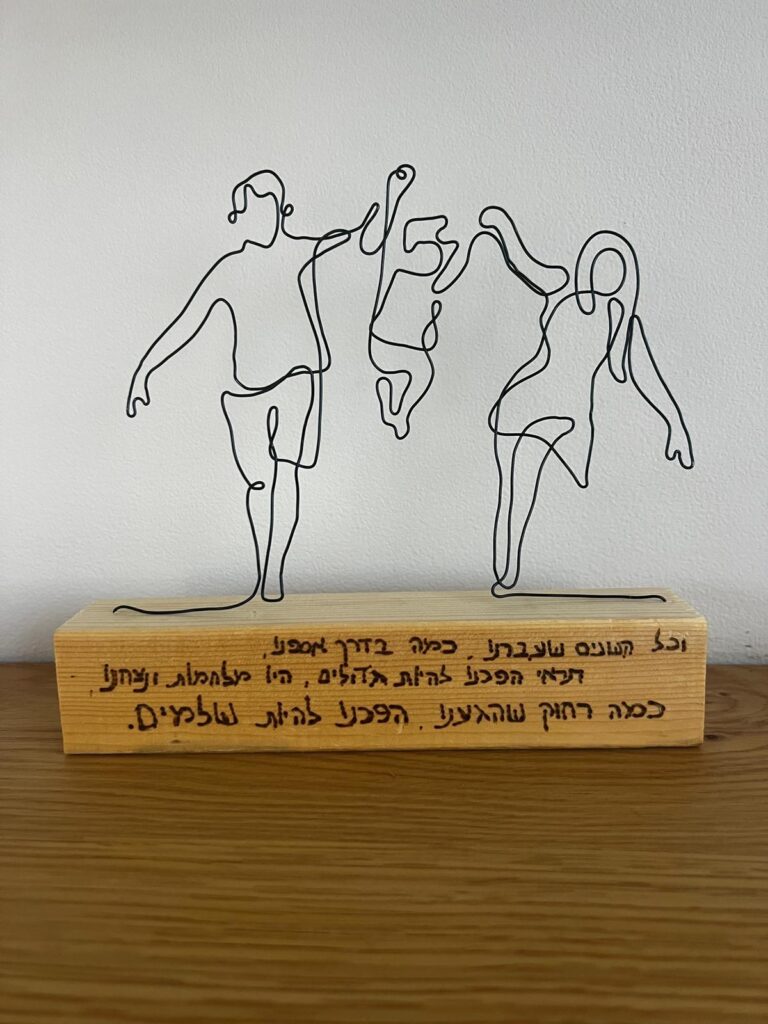 וכל הקשיים שעברנו, כמה בדרך אספנו,
תראי הפכנו להיות גדולים, היו מלחמות ונצחנו,
כמה רחוק שהגענו, הפכנו להיות שלמים.